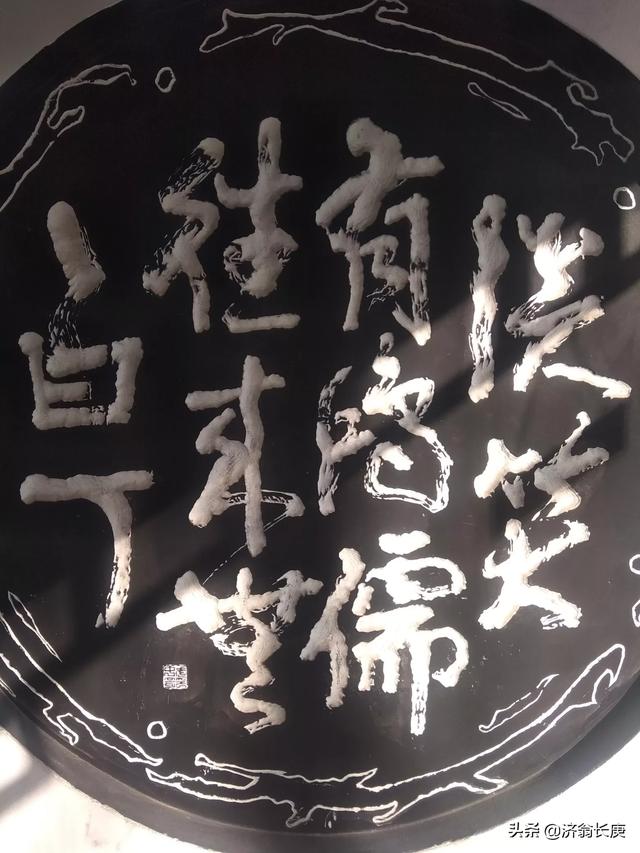 谈笑
有鸿儒
往来无
白丁
头条 @济翁长庚